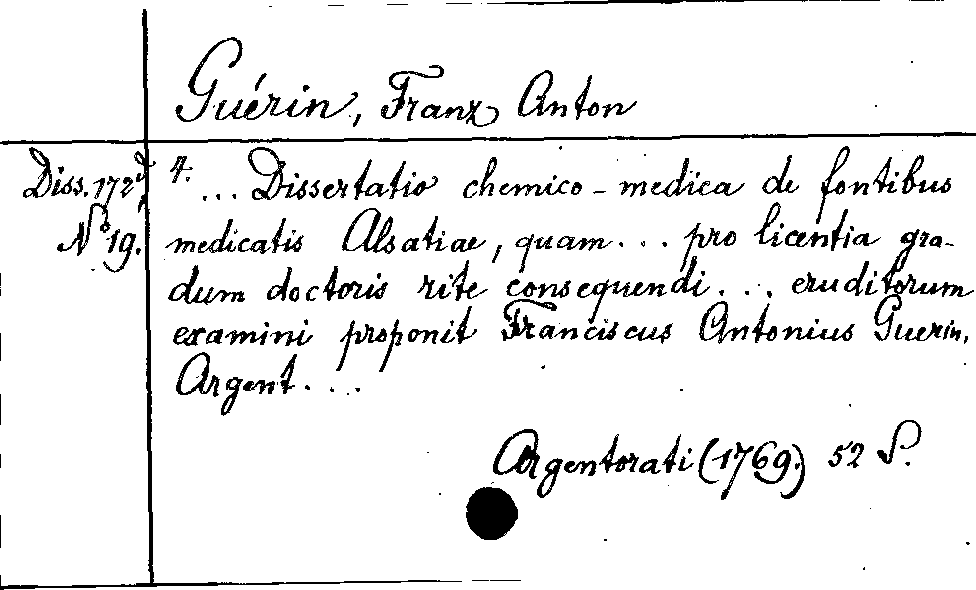 Guérin, Franz Anton
Diss. 172d,
N° 19.
4. ... Dissertatio chemico-medica de fontibus
medicatis Alsatiae, quam ... pro licentia gra-
dum doctoris rite consequendi ... eruditorum
examini proponit Franciscus Antonius Guerin,
Argent. ...
Argentorati (1769.) 52 S.